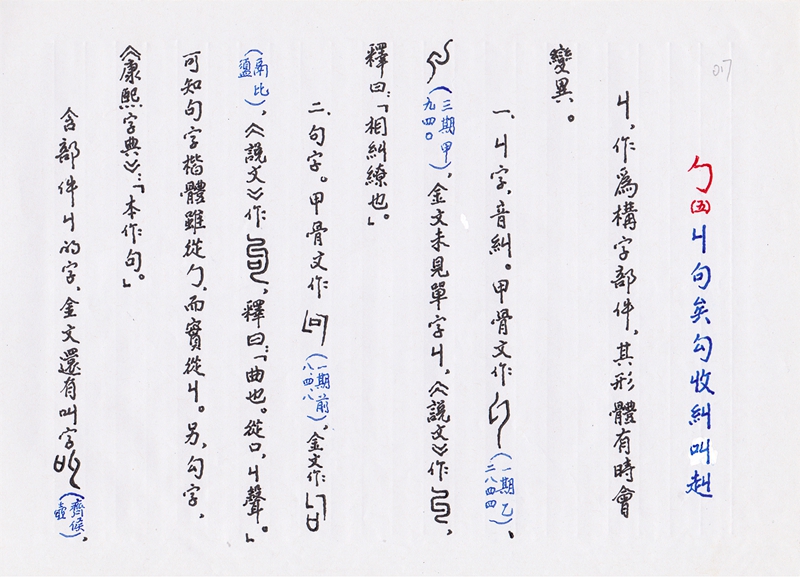 017
勹(五)丩句矣勾收糾叫赳
丩,作爲構字部件,其形體有時會
變異。
一、丩字,音糾。甲骨文作(一期乙二八四四)、
(三期甲九四〇),金文未見單字丩,《說文》作,
釋曰:「相糾繚也。」
二、句字。甲骨文作(一期前八.四.八),金文作
(鬲比盨),《說文》作,釋曰:「曲也。從口,丩聲。」
可知句字楷體雖從勹,而實從丩。另,勾字,
《康熙字典》:「本作句。」
含部件丩的字,金文還有叫字(齊侯壺),